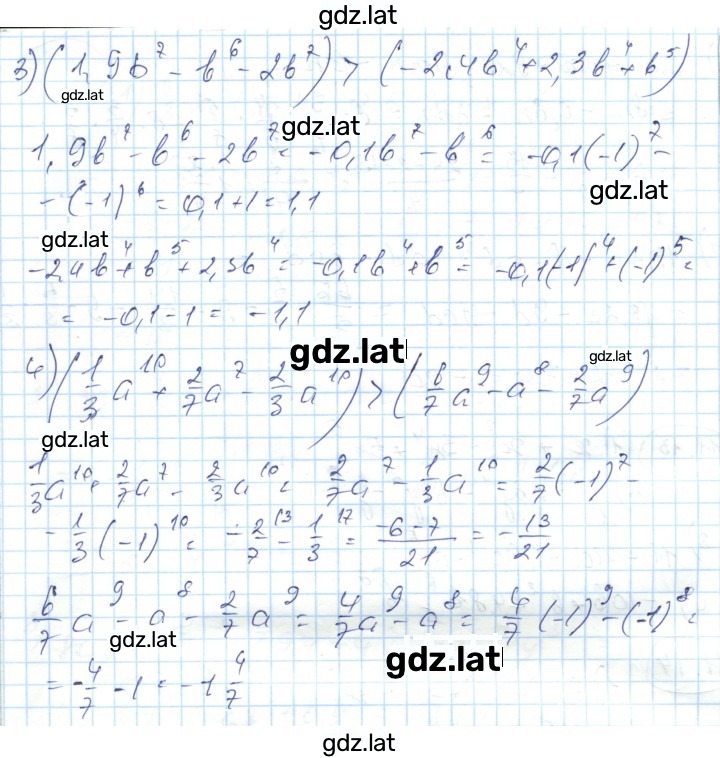 gdz.lat
3) (1,9b⁷ - b⁶ - 2b⁷) > (-2,4b⁴ + 2,3b⁴ + b⁵)
gdz.lat
gdz.lat
1,9b⁷ - b⁶ - 2b⁷ = -0,1b⁷ - b⁶ = -0,1(-1)⁷ -
gdz.lat
- (-1)⁶ = 0,1 + 1 = 1,1
gdz.lat
-2,4b⁴ + b⁵ + 2,3b⁴ = -0,1b⁴ + b⁵ = -0,1(-1)⁴ + (-1)⁵ =
= -0,1 - 1 = -1,1
gdz.lat
gdz.lat
4) (1/3 a¹⁰ + 2/7 a⁷ - 2/3 a¹⁰) > (6/7 a⁹ - a⁸ - 2/7 a⁹)
gdz.lat
1/3 a¹⁰ + 2/7 a⁷ - 2/3 a¹⁰ = 2/7 a⁷ - 1/3 a¹⁰ = 2/7 (-1)⁷ -
- 1/3 (-1)¹⁰ = -2/7 \3 - 1/3 \7 = -6-7/21 = -13/21
6/7 a⁹ - a⁸ - 2/7 a⁹ = 4/7 a⁹ - a⁸ = 4/7 (-1)⁹ - (-1)⁸ =
gdz.lat
gdz.lat
= -4/7 - 1 = -1 4/7
gdz.lat